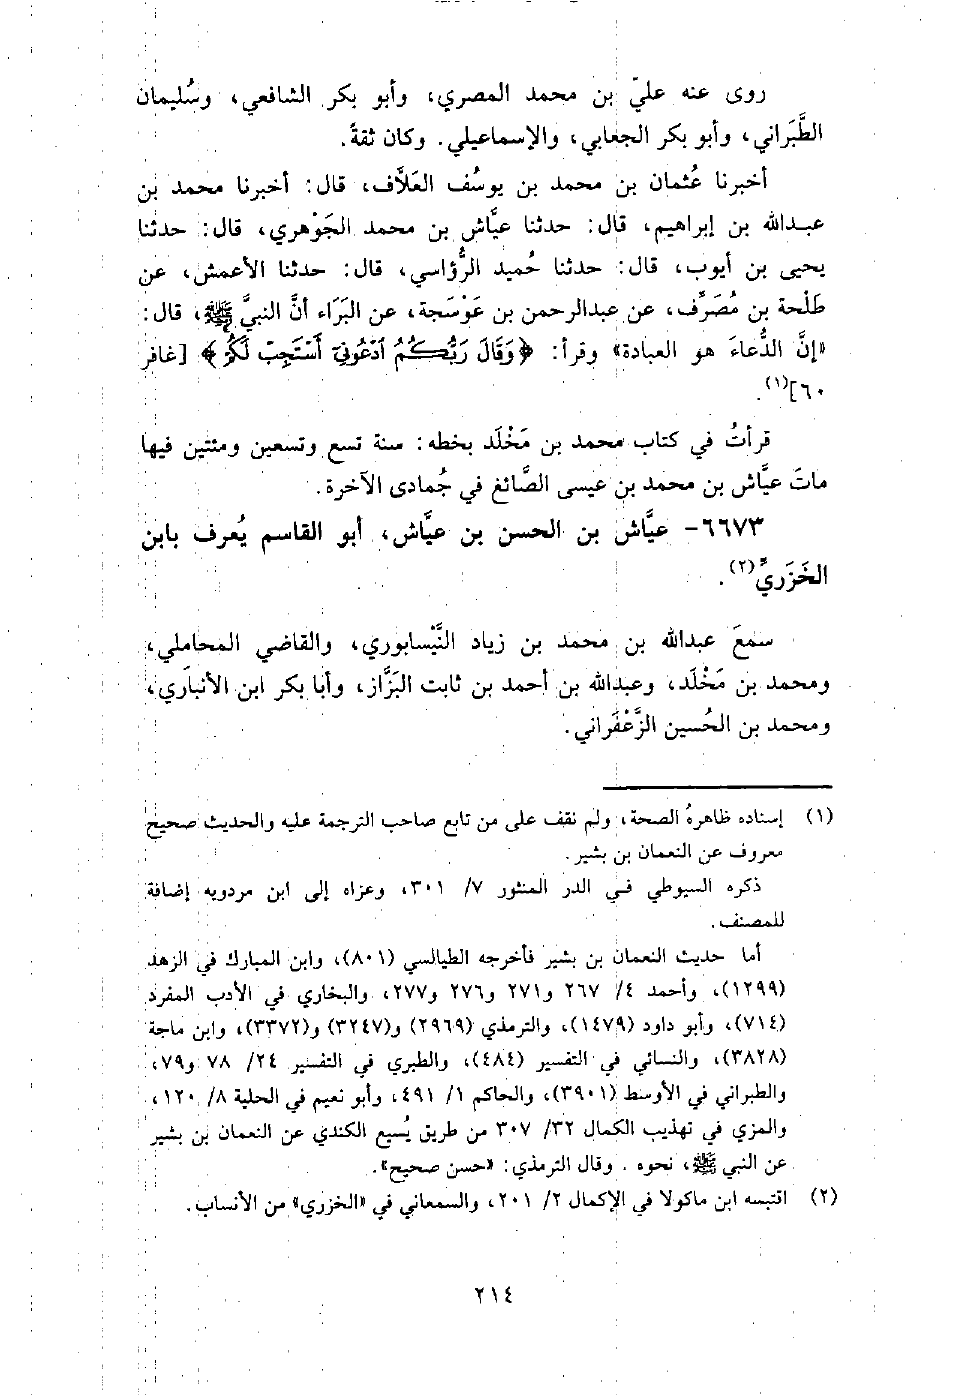 روى عنه عليّ بن محمد المصري، وأبو بكر الشافعي، وسُليمان
الطَّبَراني، وأبو بكر الجعابي، والإسماعيلي. وكان ثقةً.
أخبرنا عُثمان بن محمد بن يوسُف العَلَّاف، قال: أخبرنا محمد بن
عبدالله بن إبراهيم، قال: حدثنا عيَّاش بن محمد الجَوْهري، قال: حدثنا
يحيى بن أيوب، قال: حدثنا حُميد الرُّؤاسي، قال: حدثنا الأعمش، عن
طَلْحة بن مُصَرِّف، عن عبدالرحمن بن عَوْسَجة، عن البَرَاء أنَّ النبيَّ ﷺ، قال:
«إنَّ الدُّعاءَ هو العبادة» وقرأ: ﴿وَقَالَ رَبُّكُمُ ادْعُونِي أَسْتَجِبْ لَكُمْ﴾ [غافر
٦٠](١).
قرأتُ في كتاب محمد بن مَخْلَد بخطه: سنة تسع وتسعين ومئتين فيها
ماتَ عيَّاش بن محمد بن عيسى الصَّائغ في جُمادى الآخرة.
٦٦٧٣- عيَّاش بن الحسن بن عيَّاش، أبو القاسم يُعرف بابن
الخَزَريِّ(٢).
سمعَ عبدالله بن محمد بن زياد النَّيْسابوري، والقاضي المحاملي،
ومحمد بن مَخْلَد، وعبدالله بن أحمد بن ثابت البَزَّاز، وأبا بكر ابن الأنباري،
ومحمد بن الحُسين الزَّعْفَراني.
(١) إسناده ظاهرهُ الصحة، ولم نقف على من تابع صاحب الترجمة عليه والحديث صحيح
معروف عن النعمان بن بشير.
ذكره السيوطي في الدر المنثور ٧/ ٣٠١، وعزاه إلى ابن مردويه إضافة
للمصنف.
أما حديث النعمان بن بشير فأخرجه الطيالسي (٨٠١)، وابن المبارك في الزهد
(١٢٩٩)، وأحمد ٤/ ٢٦٧ و٢٧١ و٢٧٦ و٢٧٧، والبخاري في الأدب المفرد
(٧١٤)، وأبو داود (١٤٧٩)، والترمذي (٢٩٦٩) و(٣٢٤٧) و(٣٣٧٢)، وابن ماجة
(٣٨٢٨)، والنسائي في التفسير (٤٨٤)، والطبري في التفسير ٢٤/ ٧٨ و٧٩،
والطبراني في الأوسط (٣٩٠١)، والحاكم ١/ ٤٩١، وأبو نعيم في الحلية ٨/ ١٢٠،
والمزي في تهذيب الكمال ٣٢/ ٣٠٧ من طريق يُسيع الكندي عن النعمان بن بشير
عن النبي ﷺ، نحوه. وقال الترمذي: «حسن صحيح».
(٢) اقتبسه ابن ماكولا في الإكمال ٢/ ٢٠١، والسمعاني في «الخزري» من الأنساب.
٢١٤